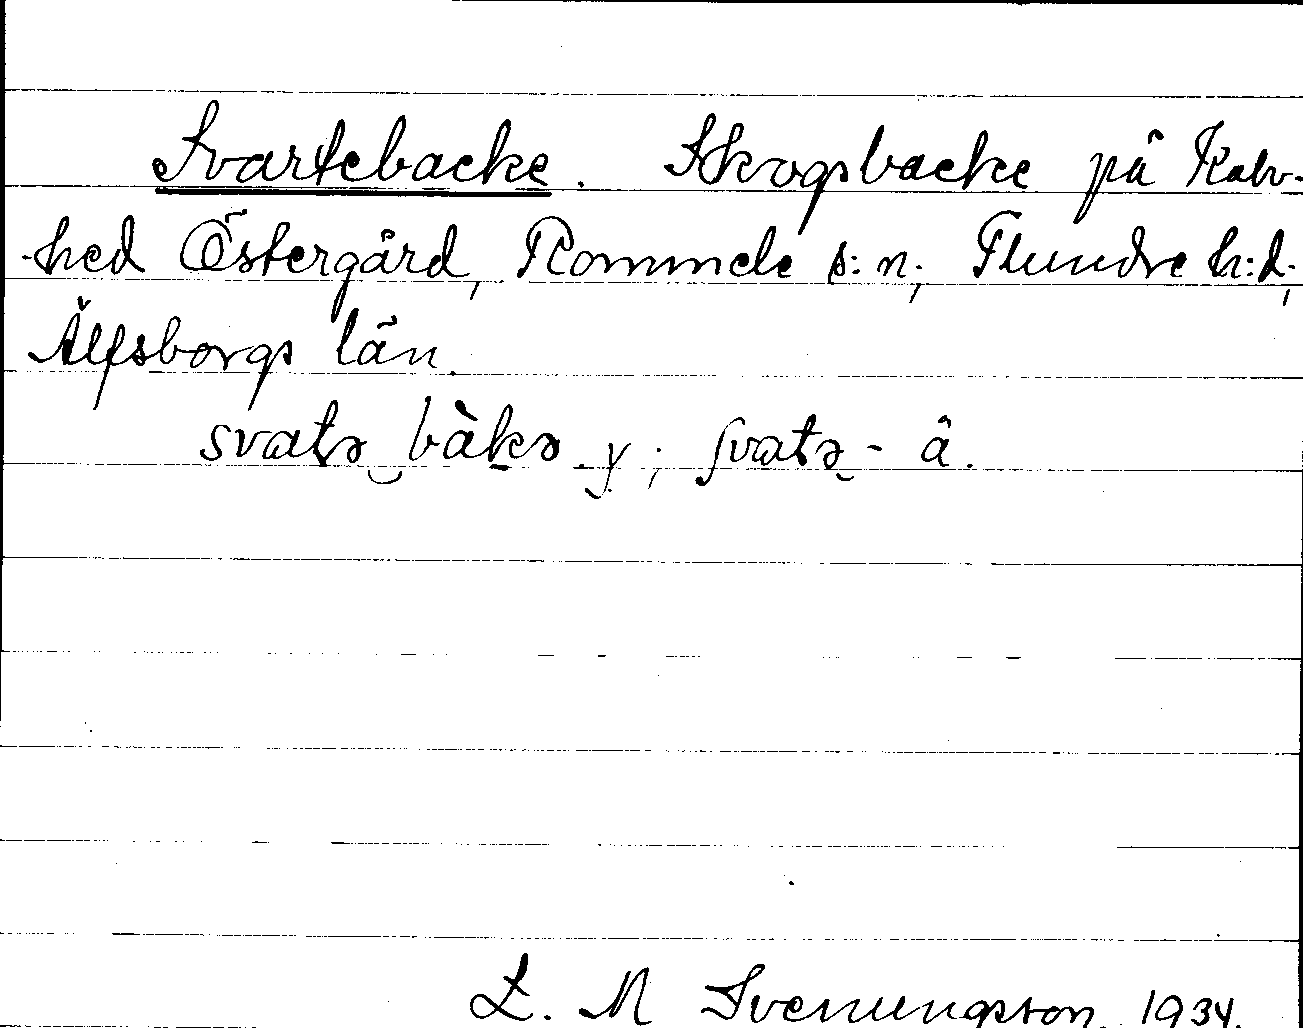 Svartebacke. Skogsbacke på Kalv-
hed Östergård, Rommele s:n; Flundre h:d;
Älfsborgs län.
svatə bàkə y; svatə - â.
L. M Svenungsson 1934.